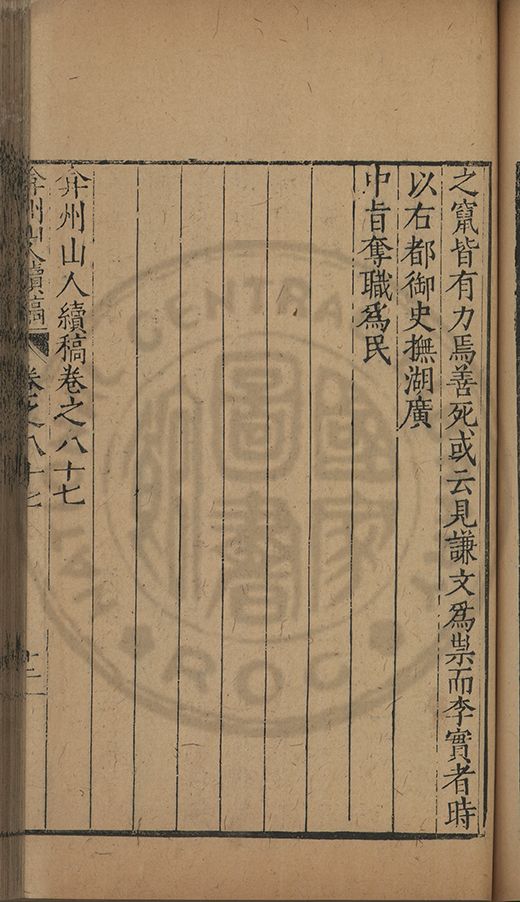 之竄皆有力焉善死或云見謙文爲祟而李實者時
以右都御史撫湖廣
中旨奪職爲民
弇州山人續稿卷之八十七
弇州山人續稿 卷之八十七
十二
圖書
CENTRAL